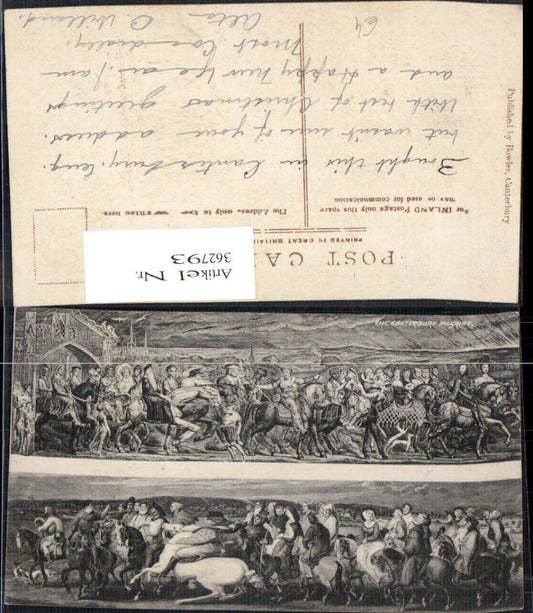 Bought this in Canterbury, Eng.
but wasn't sure of your address.
With best of Christmas greetings
and a Happy New Year. I am
Most Cordially,
Alta O. Willand.
64
For INLAND Postage only this space
may be used for communication
The Address only to be written here.
POST CA
PRINTED IN GREAT BRITAIN
Published by Bowler, Canterbury
Artikel Nr.
362793
THE CANTERBURY PILGRIMS